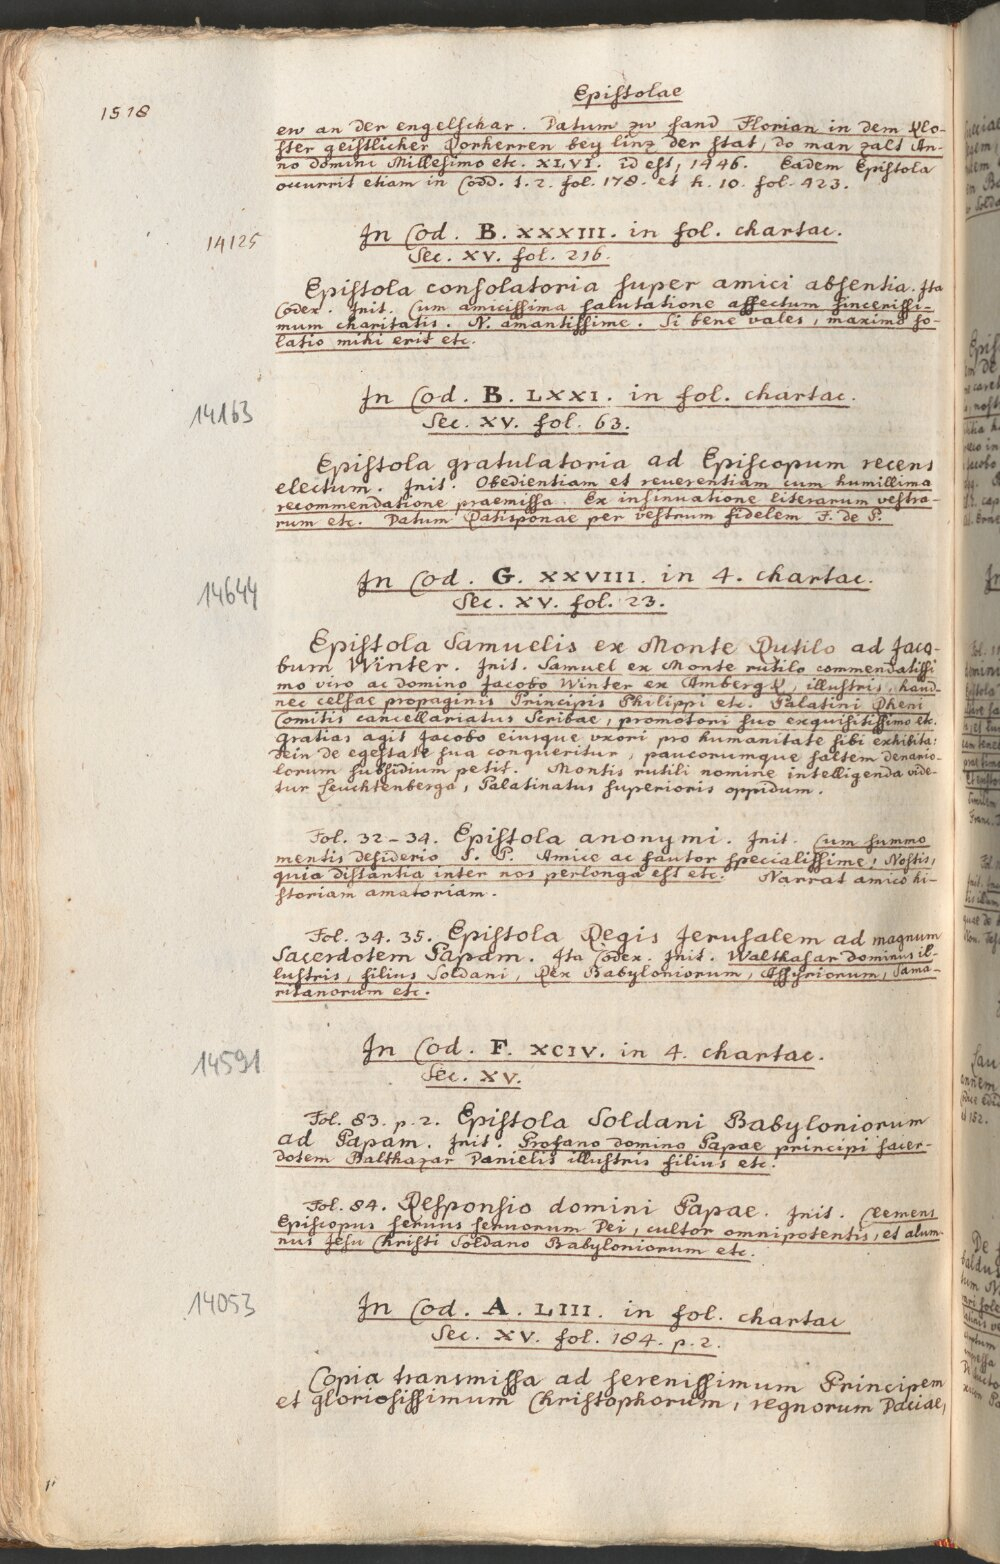 1518
Epistolae
en an der engelschar. Datum zu sand Florian in dem Klo-
ster geistlicher Korherren bey linz der stat, do man zalt An-
no domini Millesimo etc. XLVI. id est, 1446. Eadem Epistola
occurrit etiam in Codd. 1. 2. fol. 178. et h. 10. fol. 423.
14125
In Cod. B. XXXIII. in fol. chartac.
Sec. XV. fol. 216.
Epistola consolatoria super amici absentia. Ita
Codex. Init. Cum amicissima salutatione affectum sincerissi-
mum charitatis. N. amantissime. Si bene vales, maximo so-
latio mihi erit etc.
14163
In Cod. B. LXXI. in fol. chartac.
Sec. XV. fol. 63.
Epistola gratulatoria ad Episcopum recens
electum. Init. Obedientiam et reuerentiam cum humillima
recommendatione praemissa. Ex insinuatione literarum vestra-
rum etc. Datum Ratisponae per vestrum fidelem F. de P.
14644
In Cod. G. XXVIII. in 4. chartac.
Sec. XV. fol. 23.
Epistola Samuelis ex Monte Rutilo ad Jaco-
bum Winter. Init. Samuel ex Monte rutilo commendatissi
mo viro ac domino Jacobo Winter ex Amberg K, illustris, haud-
nec celsae propaginis Principis Philippi etc. Palatini Rheni
Comitis cancellariatus Scribae, promotori suo exquisitissimo etc.
Gratias agit Jacobo eiusque vxori pro humanitate sibi exhibita:
dein de egestate sua conqueritur, paucorumque saltem denario-
lorum subsidium petit. Montis rutili nomine intelligenda vide-
tur Leuchtenberga, Palatinatus superioris oppidum.
Fol. 32-34. Epistola anonymi. Init. Cum summo
mentis desiderio S. P. Amice ac fautor specialissime! Nostis,
quia distantia inter nos perlonga est etc. Narrat amico hi-
storiam amatoriam.
Fol. 34. 35. Epistola Regis Jerusalem ad magnum
Sacerdotem Papam. Ita Codex. Init. Walthasar dominus il-
lustris, filius Soldani, Rex Babyloniorum, Assyriorum, Sama-
ritanorum etc.
14591
In Cod. F. XCIV. in 4. chartac.
Sec. XV.
Fol. 83. p. 2. Epistola Soldani Babyloniorum
ad Papam. Init. Profano domino Papae principi sacer-
dotem Balthazar Danielis illustris filius etc.
Fol. 84. Responsio domini Papae. Init. Clemens
Episcopus seruus seruorum Dei, cultor omnipotentis, et alum-
nus Jesu Christi Soldano Babyloniorum etc.
14053
In Cod. A. LIII. in fol. chartac
Sec. XV. fol. 184. p. 2.
Copia transmissa ad serenissimum Principem
et gloriosissimum Christophorum, regnorum Daciae,